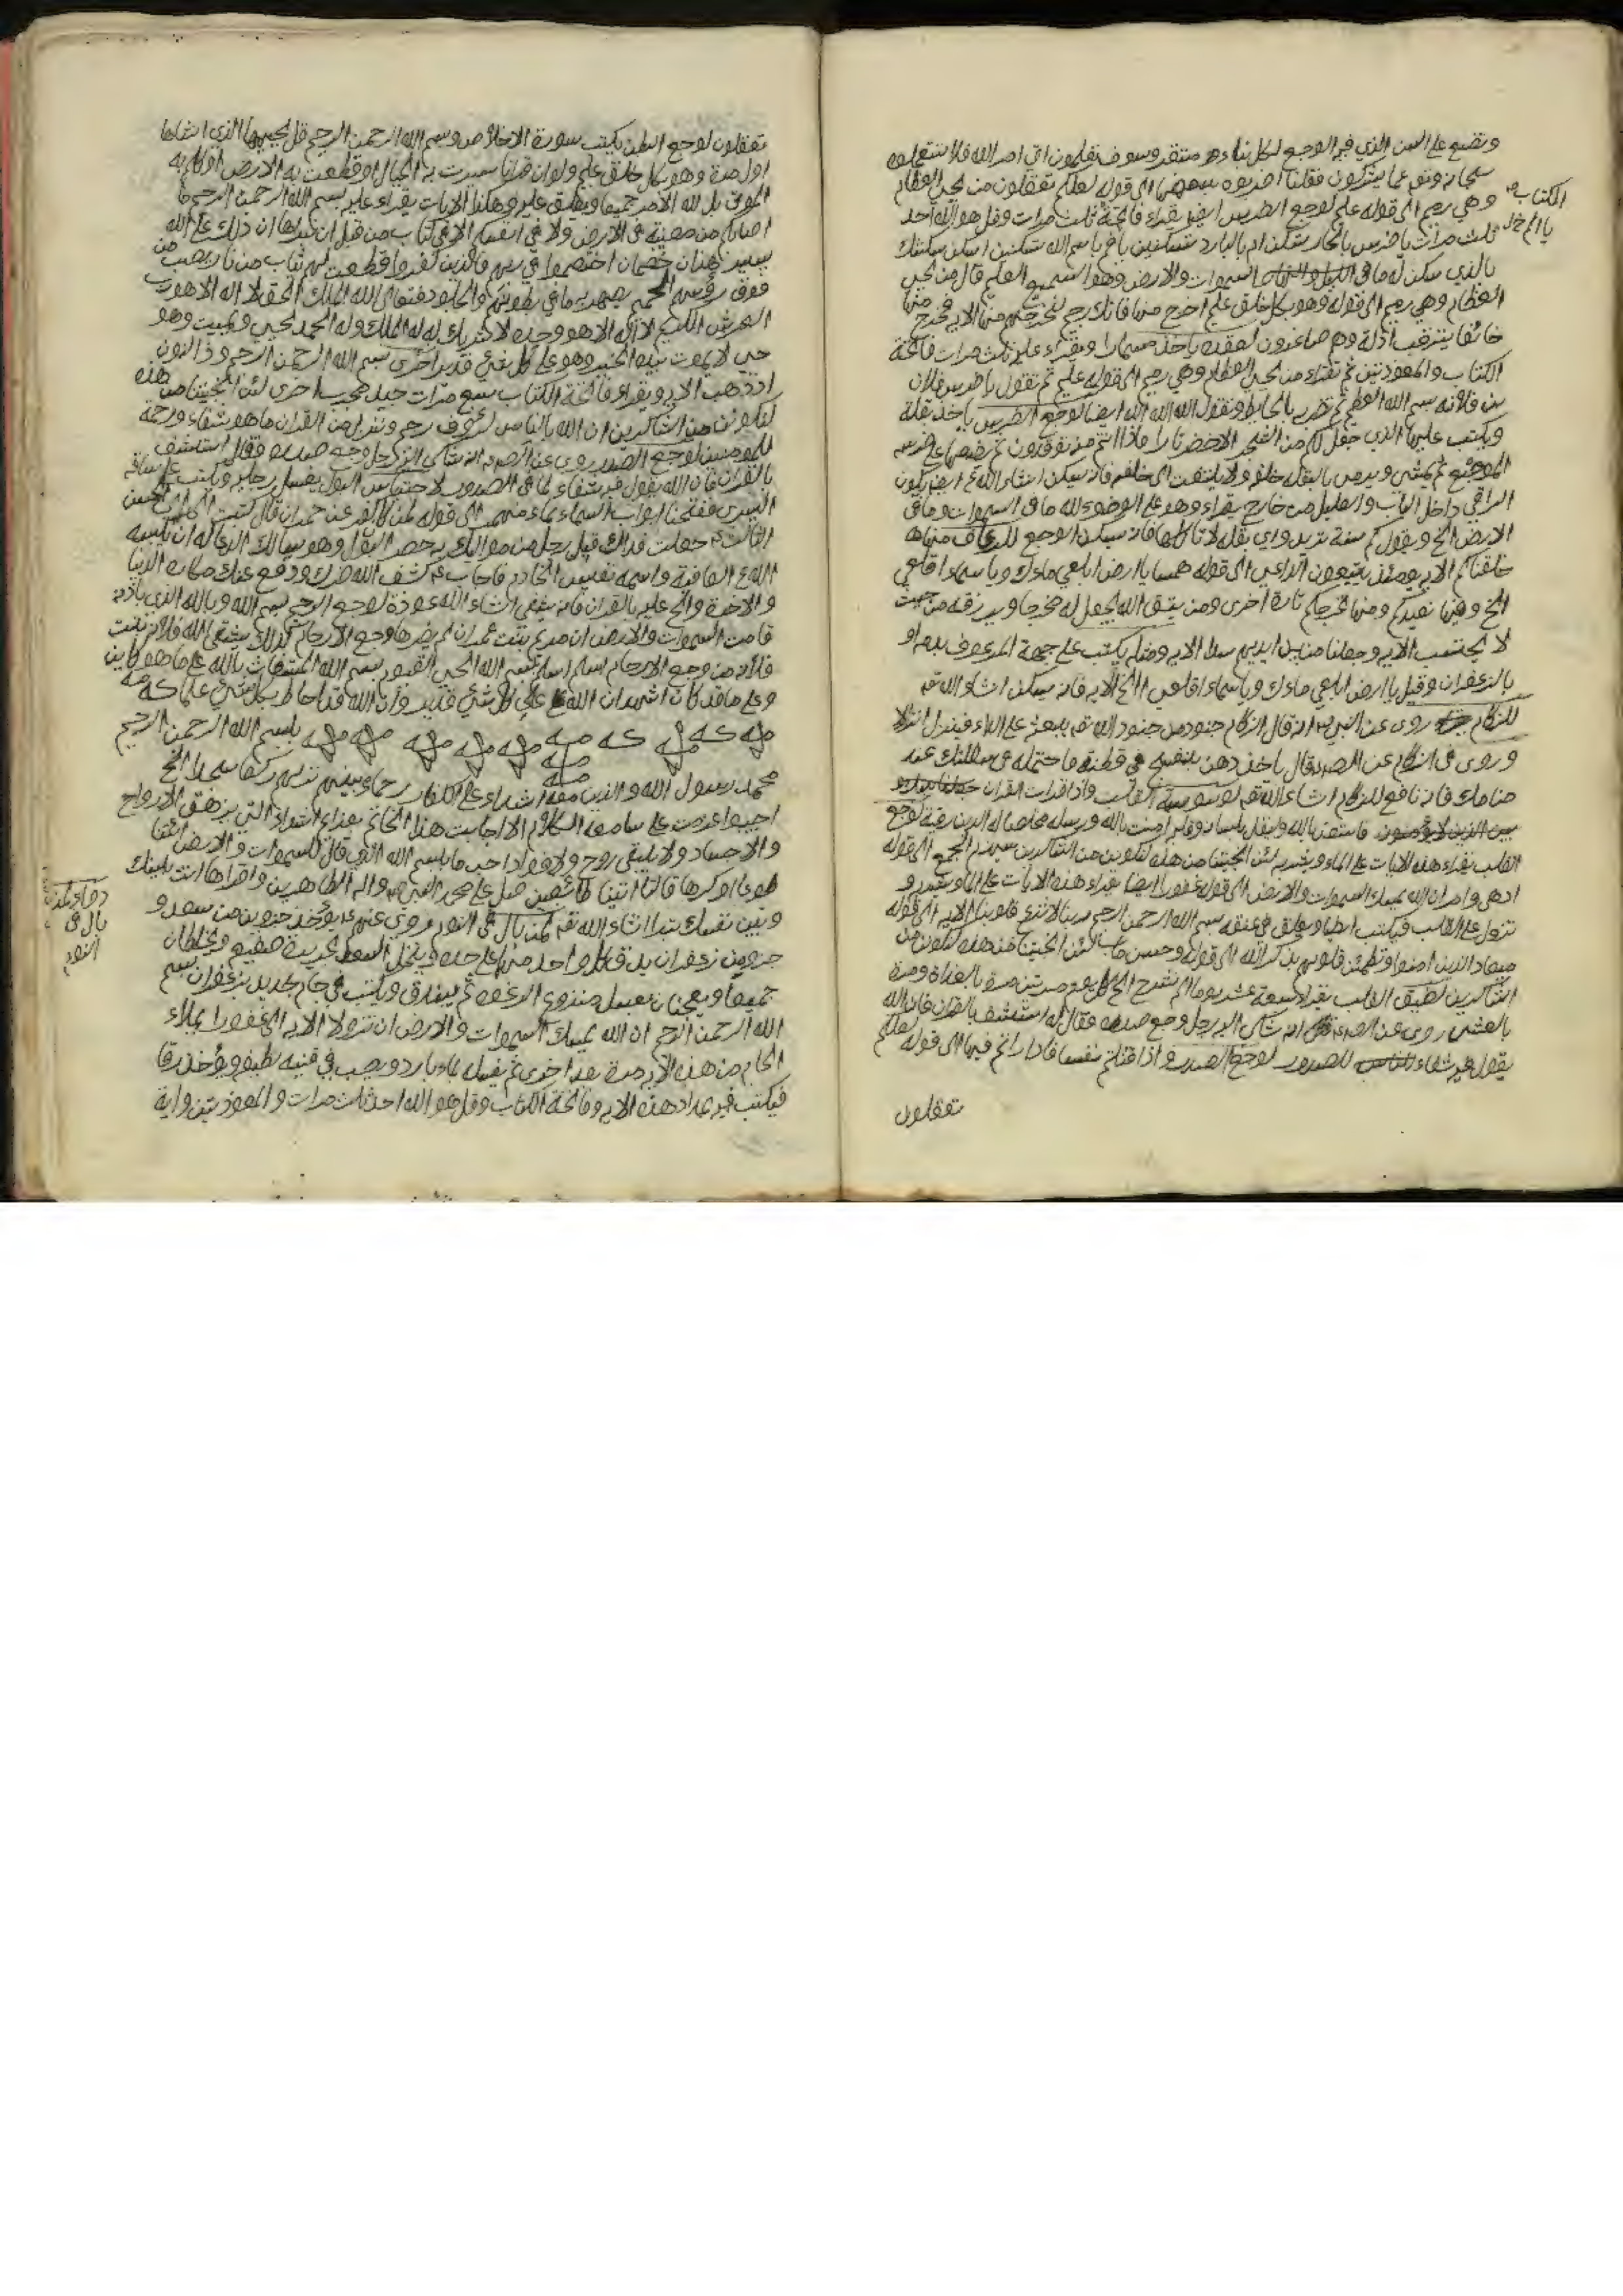 وتضع على السن الذي فيه الوجع لكل نباء مستقر وسوف تعلمون اتى امر الله فلا تستعجلوه
سبحانه وتعالى عما يشركون فقلنا اضربوه ببعضها الى قوله لعلكم تعقلون من يحيي العظام
وهي رميم الى قوله عليم لوجع الضرس ايضا يقراء فاتحة الكتاب ثلث مرات وقل هو الله احد
ثلث مرات يا ضرس بالحار تسكن ام بالبارد تسكنين ام باسم الله تسكنين اسكن سكنتك
بالذي سكن له ما في السموات والارض وهو السميع العليم قال من يحيي
العظام وهي رميم الى قوله وهو بكل خلق عليم اخرج منها فانك رجيم لنخرجنهم منها الايه فخرج منها
خائفا يترقب اذلة وهم صاغرون ياخذ مسمارا ويقراء عليه ثلث مرات فاتحة
الكتاب والمعوذتين ثم تقراء من يحيي العظام وهي رميم الى قوله عليم ثم تقول يا ضرس فلان
بن فلانه بسم الله العظيم ثم تضربه بالحايط وتقول الله الله الله ايضا لوجع الضرس ياخذ بقلة
ويكتب عليها الذي جعل لكم من الشجر الاخضر نارا فاذا انتم منه توقدون ثم يضعها على ضرسه
الموجع ثم يمشي ويرمي بالبقلة خلفه ولا يلتفت الى خلفه فانه يسكن انشاء الله ايضا يكون
الراقي داخل الباب والعليل من خارج يقراء وهو على الوضوء لله ما في السموات وما في
الارض الخ ويقول كم سنة تريد واي بقلة لا تاكلها فانه يسكن الوجع للرعاف منها
خلقناكم الايه يومئذ يتبعون الداعي الى قوله همسا يا ارض ابلعي ماءك ويا سماء اقلعي
الخ وفيها نعيدكم ومنها نخرجكم تارة اخرى ومن يتق الله يجعل له مخرجا ويرزقه من حيث
لا يحتسب الايه وجعلنا من بين ايديهم سدا الايه ومثله يكتب على جبهة المرعوف بدمه او
بالزعفران وقيل يا ارض ابلعي ماءك ويا سماء اقلعي الى اخر الايه فانه يسكن انشاء الله تعالى
للزكام روى عن النبي انه قال الزكام جنود من جنود الله تعالى يبعثه على الداء فينزل انزالا
وروى في الزكام عن قال ياخذ دهن بنفسج في قطنة فاحتمله في سفلتك عند
منامك فانه نافع للزكام انشاء الله تعالى لوسوسة القلب واذا قرات القران
فاستعذ بالله وليقل بلسانه وقلبه امنت بالله ورسله مخلصا له الدين رقية لوجع
القلب يقراء هذه الايات على الماء ويشربه لئن انجيتنا من هذه لنكونن من الشاكرين سيهزم الجمع الى قوله
ادهى وامر ان الله يمسك السموات والارض الى قوله غفورا ايضا يقراء هذه الايات على الماء ويشرب و
تنزل على القلب فيكتب ايضا ويعلق في عنقه بسم الله الرحمن الرحيم ربنا لا تزغ قلوبنا الايه الى قوله
ميعاد الذين امنوا وتطمئن قلوبهم بذكر الله الى قوله وحسن ماب لئن انجيتنا من هذه لنكونن من
الشاكرين لضيق القلب يقراء سبعة عشر يوما الم نشرح الخ كل يوم مرتين مرة بالغداة ومرة
بالعشي روى عن انه شكى اليه رجل وجع صدره فقال له استشف بالقران فان الله
يقول فيه شفاء للصدور لوجع الصدر واذ قتلتم نفسا فادارأتم فيها الى قوله لعلكم
تعقلون
تعقلون لوجع البطن يكتب سورة الاخلاص وبسم الله الرحمن الرحيم قل يحييها الذي انشاها
اول مرة وهو بكل خلق عليم ولو ان قرانا سيرت به الجبال او قطعت به الارض او كلم به
الموتى بل لله الامر جميعا ويعلق عليه وهكذا الايات يقراء عليه بسم الله الرحمن الرحيم ما
اصابكم من مصيبة في الارض ولا في انفسكم الا في كتاب من قبل ان نبراها ان ذلك على الله
يسير هذان خصمان اختصموا في ربهم فالذين كفروا قطعت لهم ثياب من نار يصب من
فوق رؤسهم الحميم يصهر به ما في بطونهم والجلود فتعالى الله الملك الحق لا اله الا هو رب
العرش الكريم لا اله الا هو وحده لا شريك له له الملك وله الحمد يحيي ويميت وهو
حي لا يموت بيده الخير وهو على كل شيء قدير اخرى بسم الله الرحمن الرحيم وذا النون
اذ ذهب الايه ويقراء فاتحة الكتاب سبع مرات جيد مجرب اخرى لئن انجيتنا من هذه
لنكونن من الشاكرين ان الله بالناس لرؤف رحيم وننزل من القران ما هو شفاء ورحمة
للمومنين لوجع الصدر روى عن انه شكى اليه رجل وجع صدره فقال استشف
بالقران فان الله يقول فيه شفاء لما في الصدور لاحتباس البول يغسل رجليه ويكتب على ساقه
اليسرى ففتحنا ابواب السماء بماء منهمر الى قوله لمن كان كفر عن حمران قال كتبت الى ابي الحسن
الثالث جعلت فداك قبلي رجل من مواليك به حصر البول وهو يسالك الدعاء له ان يلبسه
الله العافية واسمه نفيس الخادم فاجاب كشف الله ضرك ودفع عنك مكاره الدنيا
والاخرة والح عليه بالقران فانه يشفى انشاء الله عوذة لوجع الرحم بسم الله وبالله الذي باذنه
قامت السموات والارض ان مريم بنت عمران لم يضرها وجع الارحام كذلك يشفى الله فلانه بنت
فلانه من وجع الارحام بسم الله الحي القيوم بسم الله المستغاث بالله على ما هو كاين
وعلى ما قد كان اشهد ان الله على كل شيء قدير وان الله قد احاط بكل شيء علما
بسم الله الرحمن الرحيم
محمد رسول الله والذين معه اشداء على الكفار رحماء بينهم تريهم ركعا سجدا الخ
اجيبوا عزمت على سامعة الكلام الا اجابت هذا الخاتم بعزائم الله التي يزهق الارواح
والاجساد ولا يبقى روح ولا فواد اجب ما باسم الله الذي قال للسموات والارض ائتيا
طوعا او كرها قالتا اتينا طائعين صل على محمد النبي واله الطاهرين واقراها انت بينك
وبين نفسك تبرا انشاء الله تعالى لمن بال في النوم روى عنهم يؤخذ جزوين من سعد و
جزوين زعفران يدق كل واحد منها على حده وينخل السعد بحريرة صفيق ويخلطان
جميعا ويعجنان بعسل منزوع الرغوه ثم يبندق ويكتب في جام جديد بزعفران بسم
الله الرحمن الرحيم ان الله يمسك السموات والارض ان تزولا الايه الى غفورا يملاء
الجام من هذه الايه مرة بعد اخرى ثم يغسله بماء بارد ويصب في قنينه نظيفه ويؤخذ رقا
فيكتب فيه بمداد هذه الايه وفاتحة الكتاب وقل هو الله احد ثلث مرات والمعوذتين واية
بال في
النوم